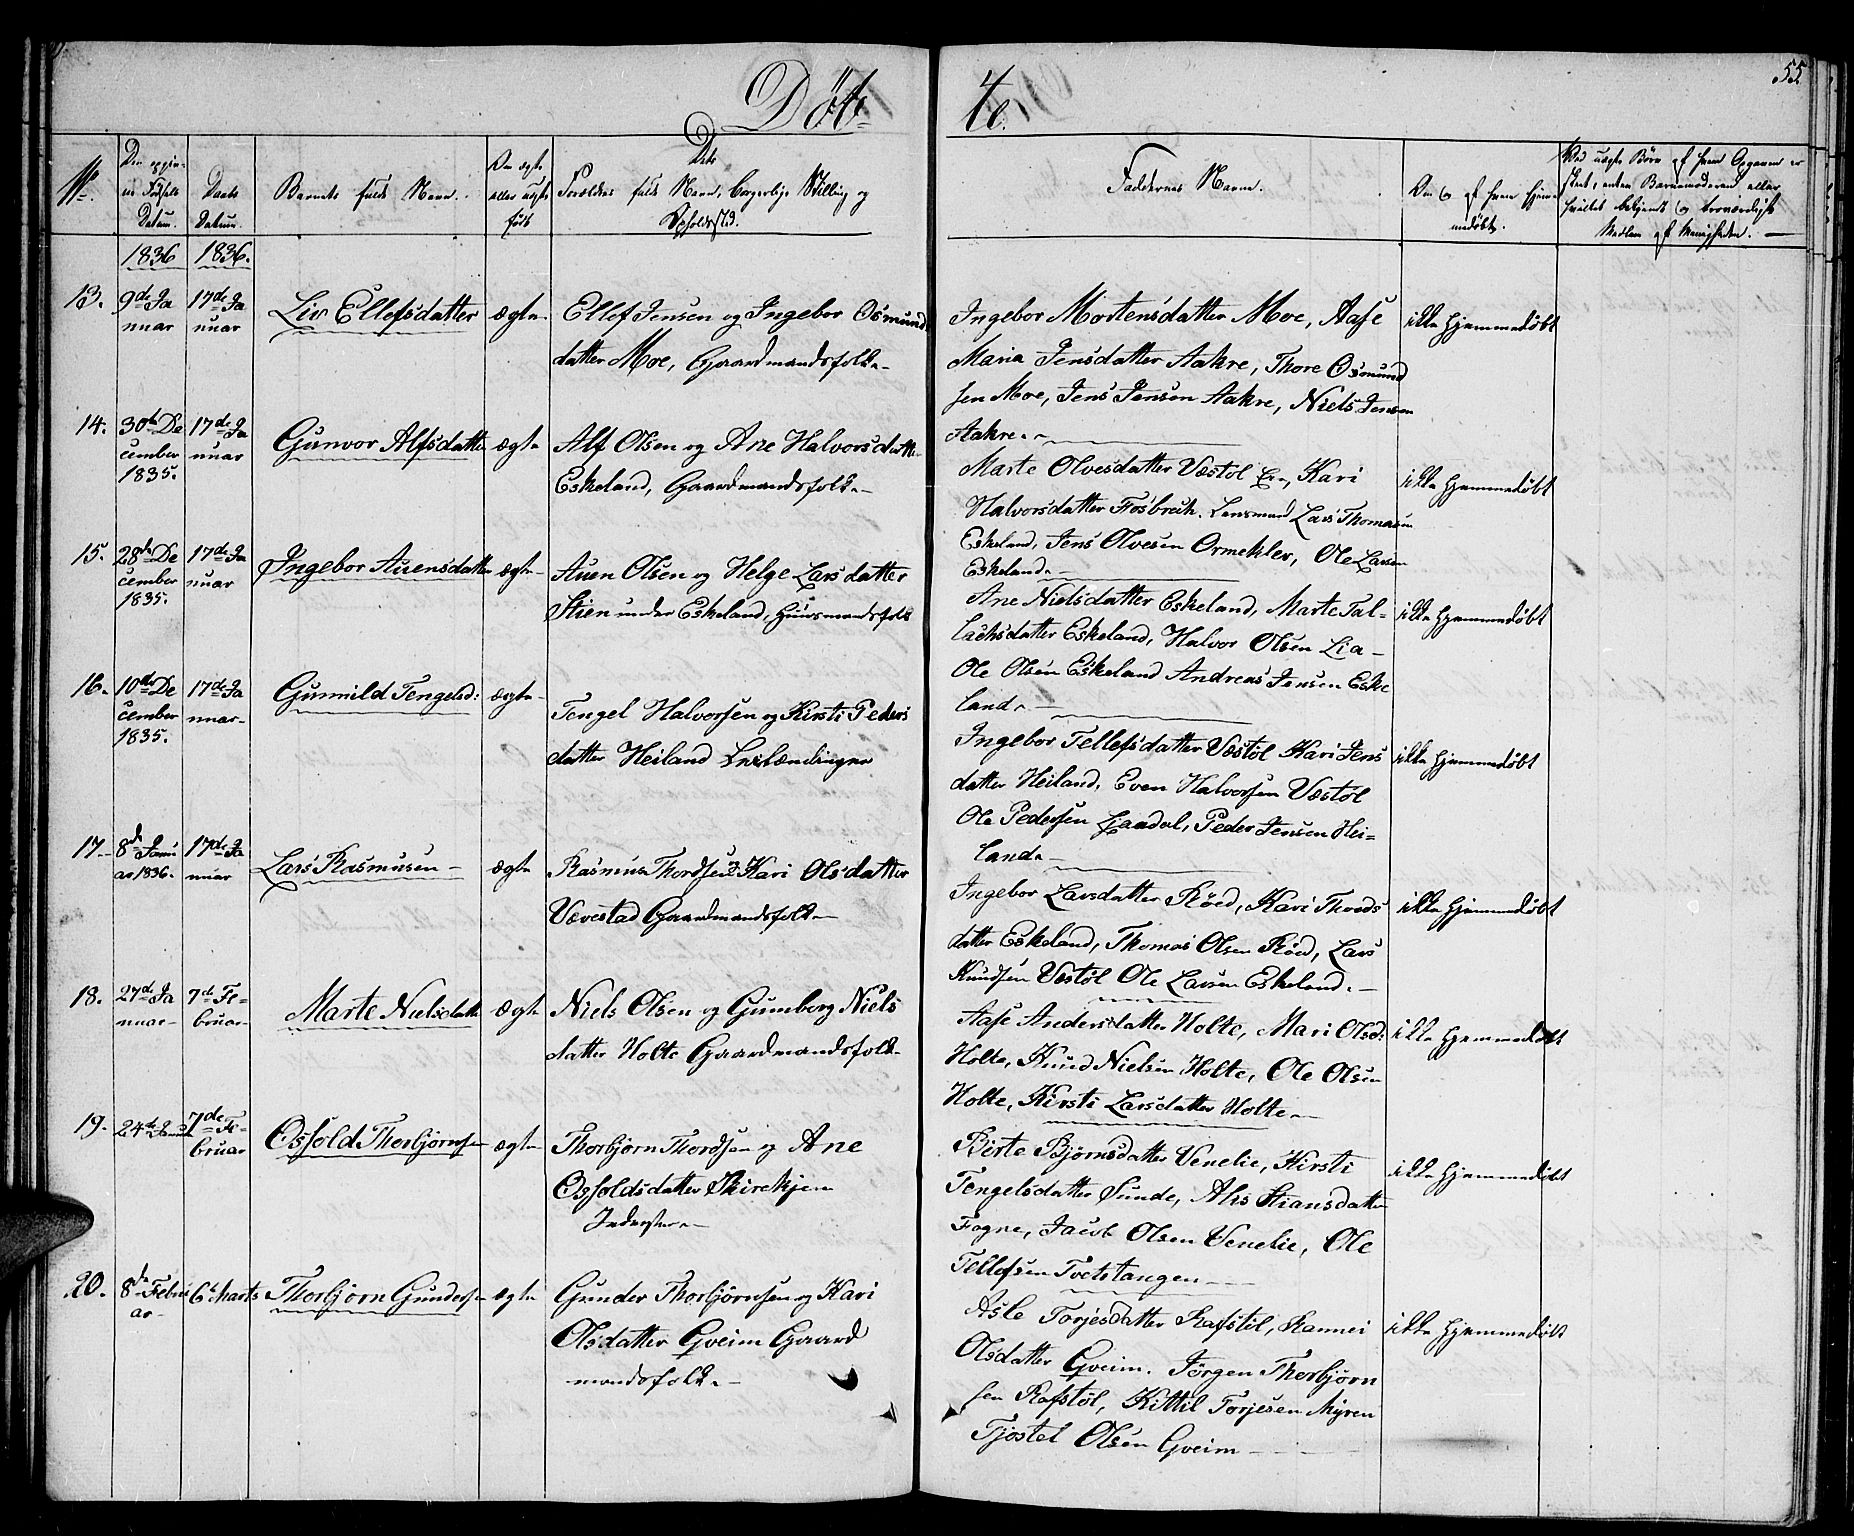 55
Døbte.
No.
Den opgivne Fødsels Datum.
Daabs Datum.
Barnets fulde Navn.
Om ægte eller uægte født
Dets Forældres fulde Navn, borgerlige Stilling og Opholdssted.
Faddernes Navne.
Om og af hvem hjemmedøbt.
Ved uægte Børn af hvem Opgaven er skeet, enten Barnemoderen eller hvilket bekjendt og troværdigt Medlem af Menigheden.
1836 1836.
13.
9de Ja
nuar
17de Ja
nuar
Liv Ellefsdatter
ægte
Ellef Jensen og Ingebor Osmund
datter Moe, Gaardmandsfolk
Ingebor Mortensdatter Moe, Aase
Maria Jensdatter Aakre, Thore Osmund
sen Moe, Jens Jensen Aakre, Niels Jensen
Aakre.
ikke hjemmedøbt
14.
30te De
cember
1835.
17de Ja
nuar
Gunvor Alfsdatter
ægte
Alf Olsen og Ane Halvorsdatter
Eskeland, Gaardmandsfolk
Marte Olvesdatter Væstøl, Kari
Halvorsdatter Fosbræk. Lensmand Lars Thomasen
Eskeland, Jens Olvesen Ormekler, Ole Larsen
Eskeland
ikke hjemmedøbt
15.
28de De
cember
1835.
17de Ja
nuar
Ingebor Auensdatter
ægte
Auen Olsen og Helge Larsdatter
Stien under Eskeland, Huusmandsfolk
Ane Nielsdatter Eskeland, Marte Tal-
lachsdatter Eskeland, Halvor Olsen Lia
Ole Olsen Eskeland Andreas Jensen Eske
land
ikke hjemmedøbt
16.
10de De
cember
1835.
17de Ja
nuar
Gunnild Tengelsd:
ægte
Tengel Halvorsen og Kirsti Peders
datter Heiland Inderster
Ingebor Tellefsdatter Væstøl Kari Jens
datter Heiland, Even Halvorsen Væstøl
Ole Pedersen Liadal, Peder Jensen Hei-
land
ikke hjemmedøbt
17.
8de Janu
ar 1836.
17de Ja
nuar
Lars Rasmusen
ægte
Rasmus Thordsen og Kari Olsdatter
Vævestad Gaardmandsfolk
Ingebor Larsdatter Røed, Kari Thords
datter Eskeland, Thomas Olsen Røed, Lars
Knudsen Væstøl Ole Larsen Eskeland.
ikke hjemmedøbt
18.
27de Ja
nuar
7de Fe-
bruar
Marte Nielsdatt
ægte
Niels Olsen og Gunborg Niels
datter Holte Gaardmandsfolk
Aase Andersdatter Holte, Mari Olsd:
Holte, Knud Nielsen Holte, Ole Olsen
Holte, Kirsti Larsdatter Holte
ikke hjemmedøbt
19.
24de Januar
7de Fe-
bruar
Osfold Thorbjørnsen
ægte
Thorbjørn Thordsen og Ane
Osfoldsdatter Skirekjen
Inderster
Birte Bjørnsdatter Venelie, Kirsti
Tengelsdatter Sunde, Ahs Stiansdatter
Fogne, Jacob Olsen Venelie, Ole
Tellefsen Tvetstangen
ikke hjemmedøbt
20.
8de Febru
ar
6te Marts
Thorbjørn Gundersen
ægte
Gunder Thorbjørnsen og Kari
Olsdatter Gveim Gaard
mandsfolk
Asle Torjesdatter Rafstøl, Rannei
Olsdatter Gveim. Jørgen Thorbjørn
sen Rafstøl, Kittil Torjesen Myren
Tjøstel Olsen Gveim
ikke hjemmedøbt